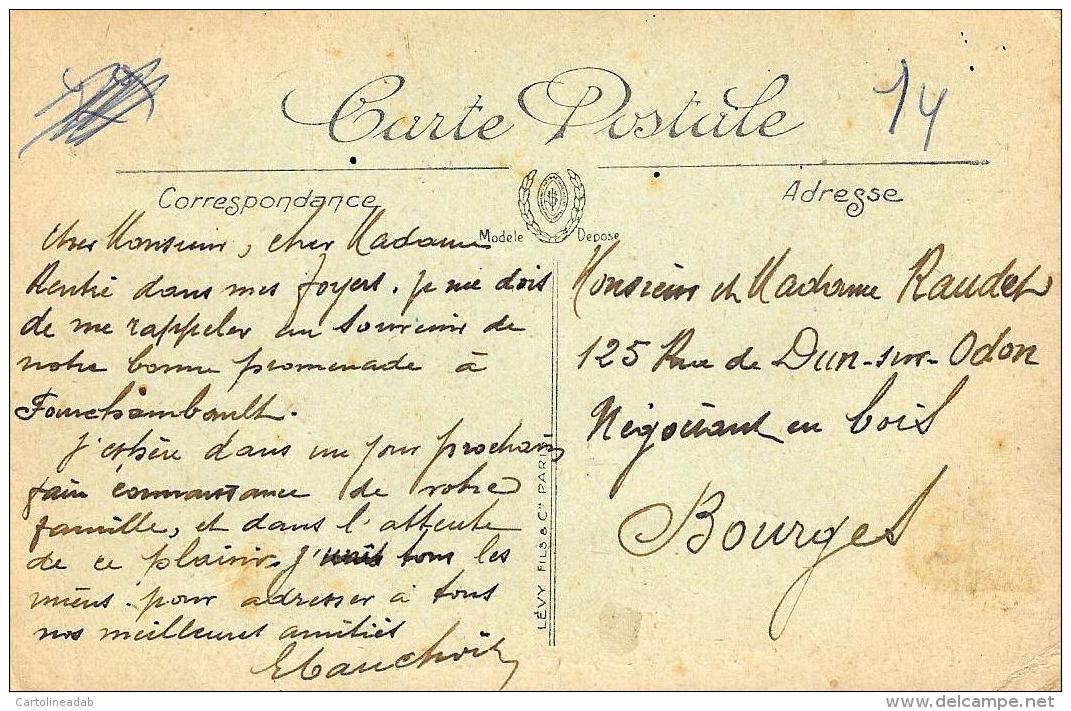 14
Carte Postale
Correspondance
Adresse
Modele Depose
Cher Monsieur, cher Madame
Rentré dans mes foyers. je me dois
de me rappeler au souvenir de
notre bonne promenade à
Fourchambault.
J'espère dans un jour prochain
faire connaissance de votre
famille, et dans l'attente
de ce plaisir. j'unis tous les
miens. pour adresser à tous
nos meilleures amitiés
Monsieur et Madame Raudet
125 Rue de Dun-sur-Odon
Négociant en bois
Bourges
LÉVY FILS & Cie PARIS
Cartolineadab
www.delcampe.net